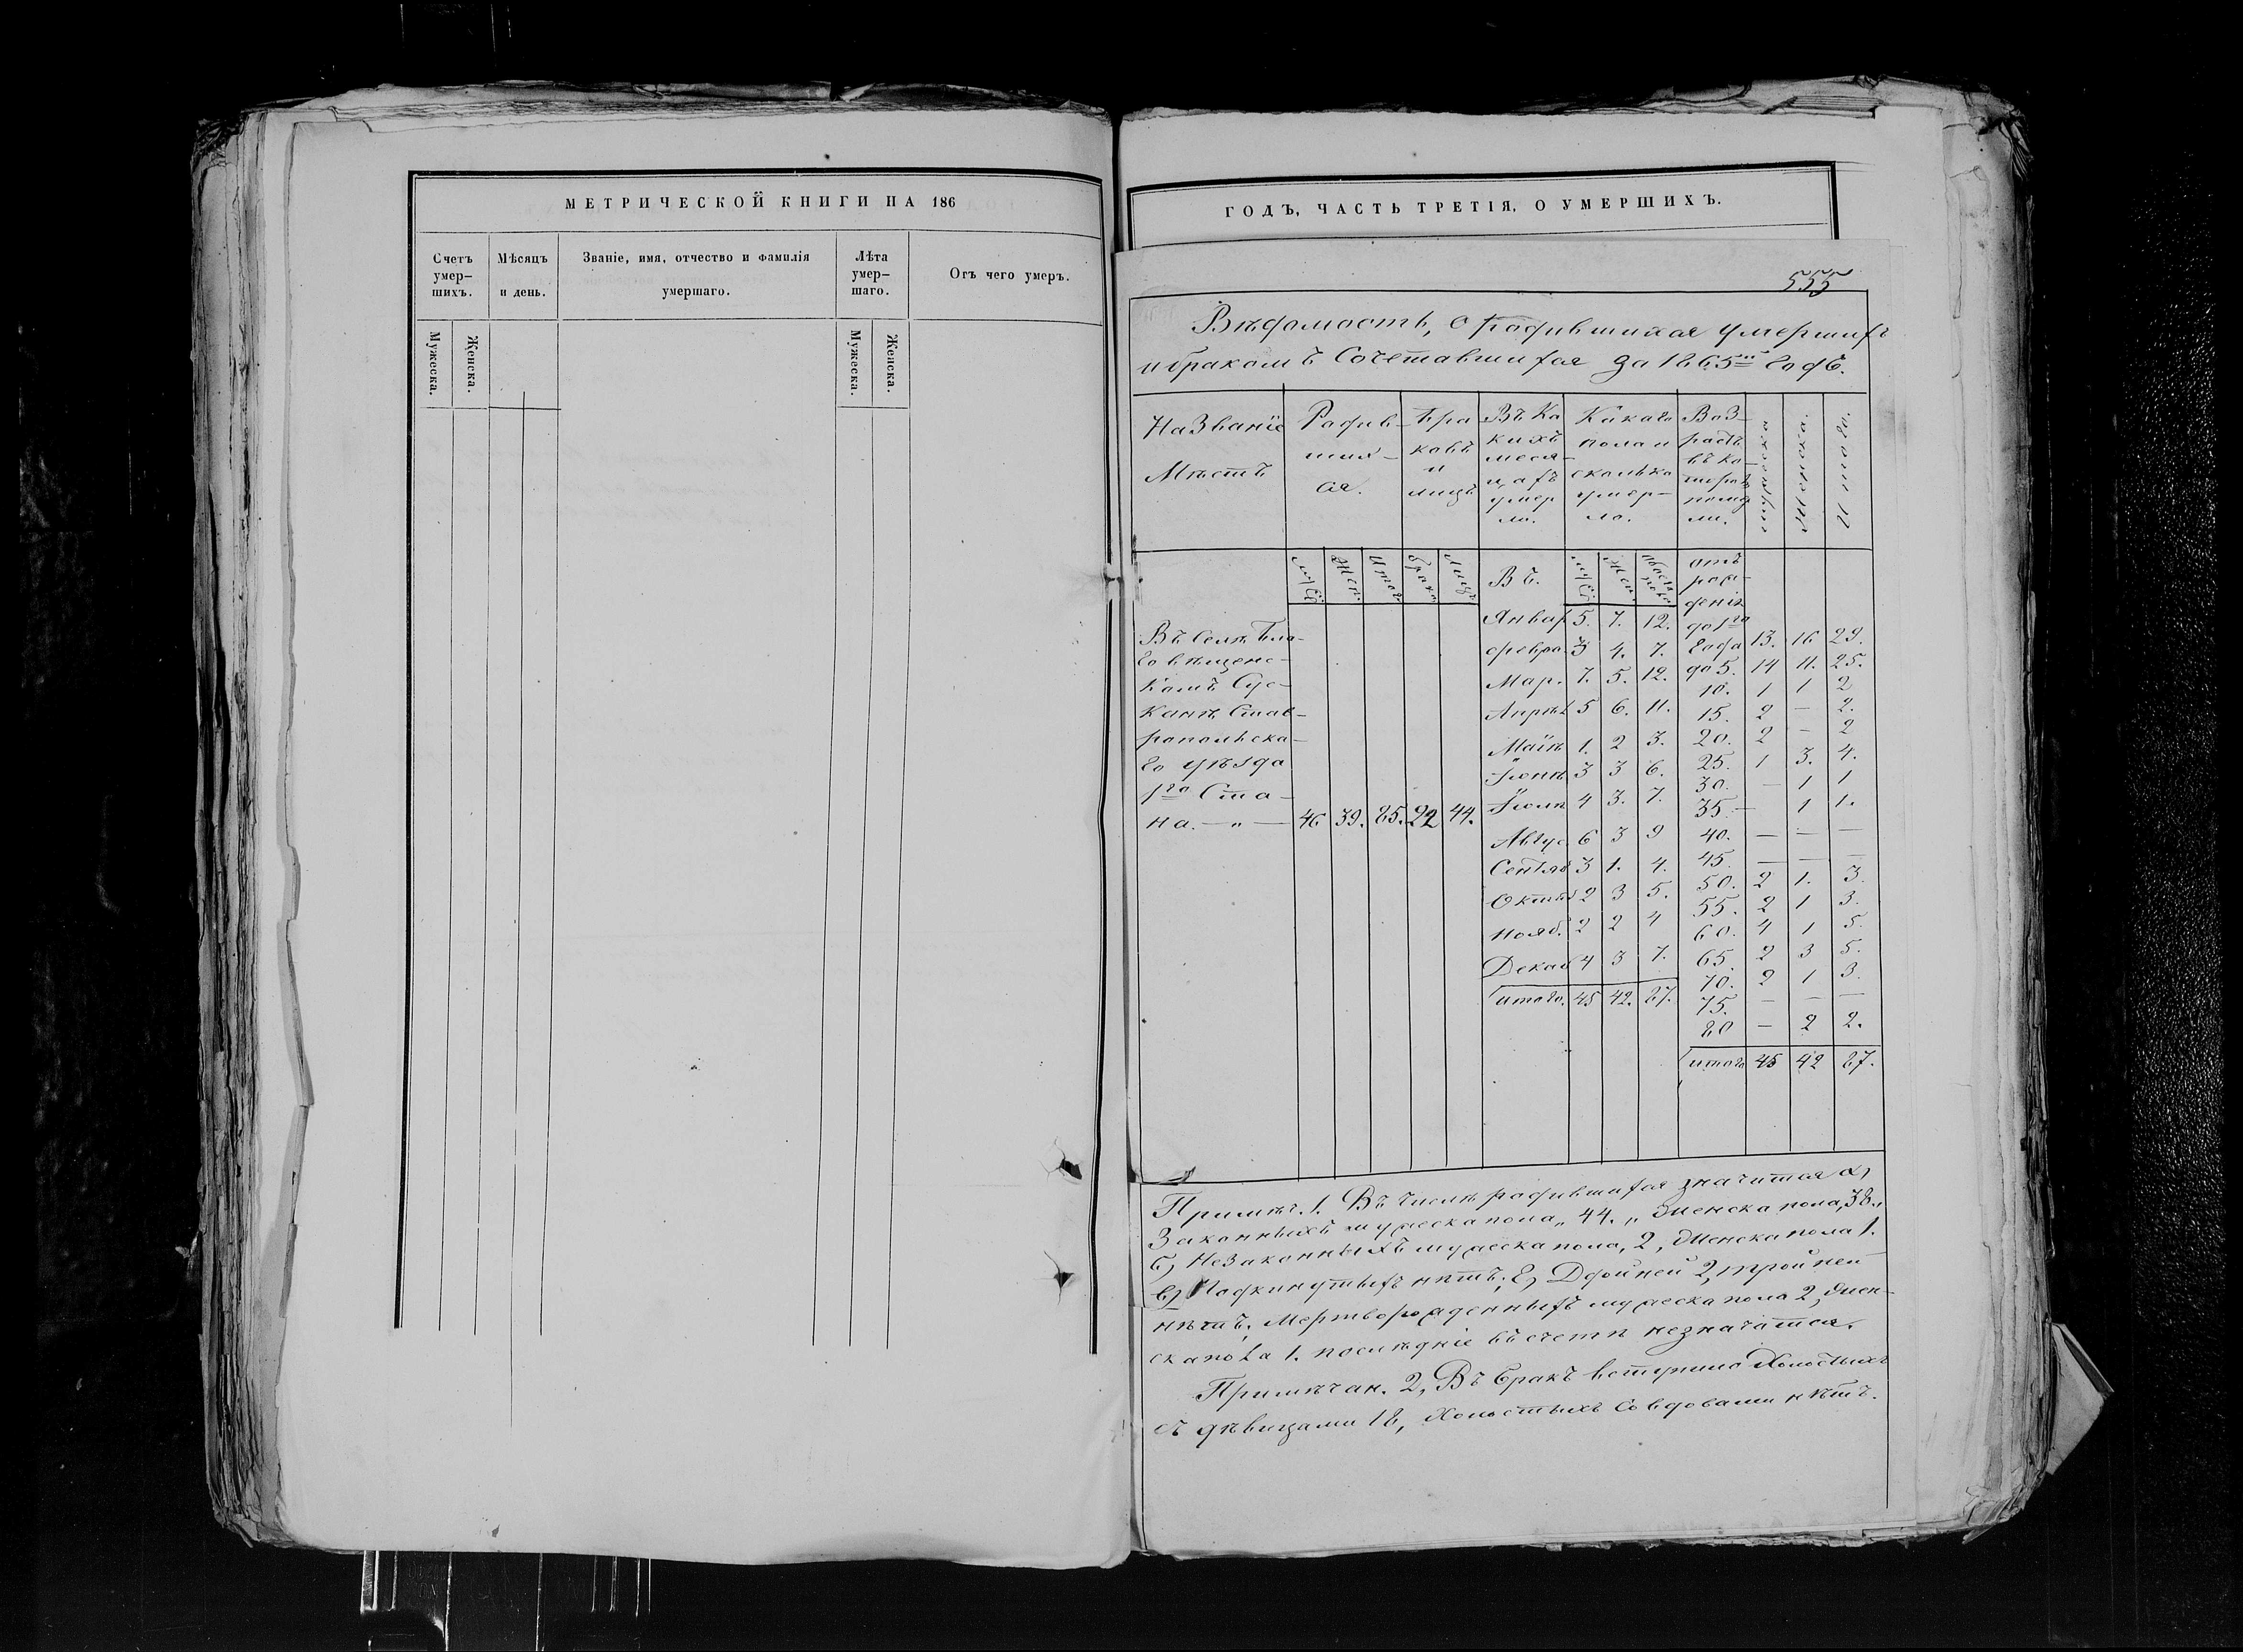 МЕТРИЧЕСКОЙ КНИГИ НА 186
Счетъ умер-
шихъ.
Мѣсяцъ
и день.
Званіе, имя, отчество и фамилія
умершаго.
Лѣта
умер-
шаго.
Отъ чего умеръ.
Мужеска.
Женска.
Мужеска.
Женска.
ГОДЪ, ЧАСТЬ ТРЕТІЯ, О УМЕРШИХЪ.
555
Вѣдомость, о родившихся умершихъ
и бракомъ сочетавшихся за 1865й годъ.
Названіе
Мѣстъ
Родив-
ших-
ся.
Бра
ковъ
и
лицъ
Въ Ка
кихъ
меся-
цахъ
умер
ло.
Какого
пола и
сколько
умер-
ло.
Воз-
растъ
въ ко-
торомъ
помер
ли.
мужеска
Женска.
Итого.
муж
Жен.
Итого
брак.
Лицъ
Въ.
муж
Жен.
отъ
рож-
денія
до 1го
Года 13. 16 29.
Январ 5. 7. 12.
Февра. 3 4. 7.
до 5. 14 11. 25.
Мар. 7. 5. 12.
10. 1 1 2
Апрѣл 5 6. 11.
15. 2 — 2.
Маіѣ 1. 2 3.
20. 2 — 2
Іюнѣ 3 3 6.
25. 1 3. 4.
30. — 1 1
Іюлѣ 4 3. 7.
35. — 1 1.
Авгус. 6 3 9
40. — — —
Сентяб 3 1. 4.
45. — — —
50. 2 1. 3.
Октяб 2 3 5.
55. 2 1 3.
Нояб. 2 2 4
60. 4 1 5.
Декаб 4 3 7.
65. 2 3 5.
70. 2 1 3.
итого. 45 42. 87.
75. — — —
80 — 2 2.
итого 45 42 87.
Въ селѣ Бла-
говѣщенс-
комъ Сус-
канѣ Став-
ропольска-
го уѣзда
1го Ста-
на. — „ — 46 39. 85. 22 44.
Примѣч. 1. Въ числѣ родившихся значится а)
Законныхъ мужеска пола „ 44. „ Женска пола, 38.,
б) Незаконныхъ мужеска пола, 2, Женска пола 1.
в) Подкинутыхъ нѣтъ; г) Двойней 2, тройней
нѣтъ; Мертворожденныхъ мужеска пола 2, Жен-
ска пола 1. послѣдніе въ счетѣ незначатся.
Примѣчан. 2, Въ бракъ вступило Холостыхъ
съ дѣвицами 18, Холостыхъ со вдовами нѣтъ.